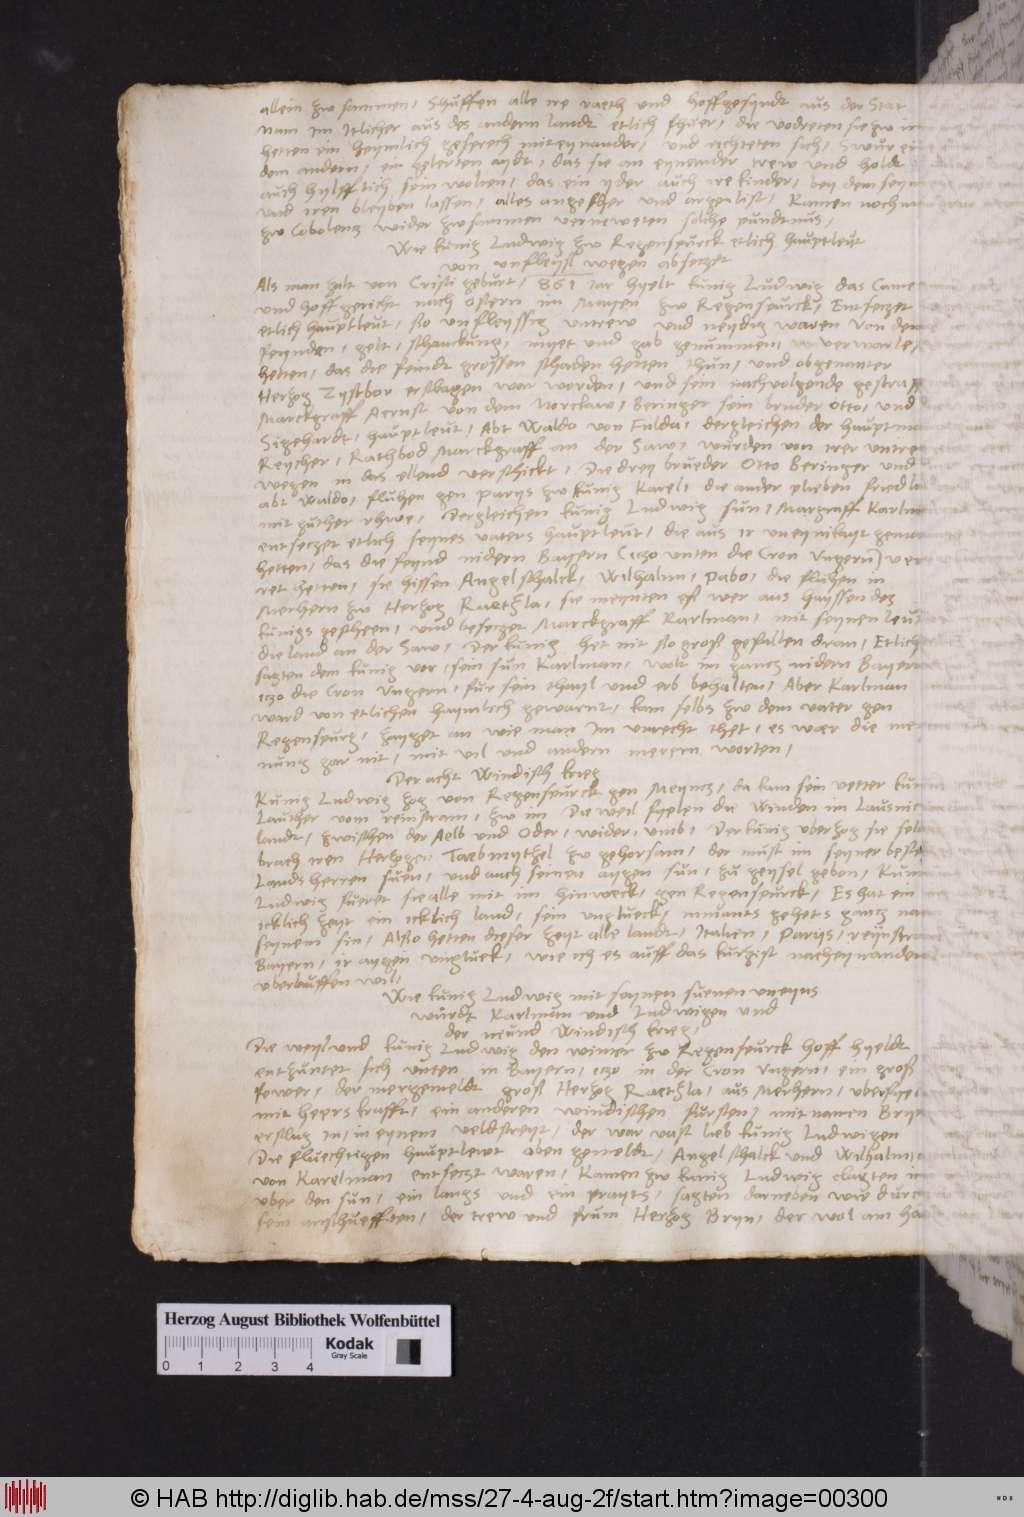 allein zw sammen, Schuffen alle ire raeth und hoffgesyndt aus der Stat
Nam im Itlicher aus des andern landt etlich, die vodreten sie zw im
hetten ein heymlich gesprech miteynander, und rechteten sich, Swur einer
dem andern, ein gelerten aydt, das sie an eynander trew und holdt
auch hylfflich sein wolten, das ein yder auch ire kinder, bey dem seyn
und iren bleyben lassen, alles ungefher und argenlist, Kamen nochmals
zw Cobolentz wider zw sammen verneweten solche pundtnus,
Wie kunig Ludwig zw Regenspurck etlich hauptleut
von unfleyss wegen absetzet
Als man zalt von Cristi geburt, 861 Iar hyelt kunig Ludwig das Came
und hoffgericht nach Ostern im Mayen zw Regenspurck, Entsetzet
etlich hauptleut, sso unfleyssig untrew und neydig waren von den
feynden, gelt, schanckung, myet und gab genummen, verwarlest
hetten, das die feindt grossen schaden hetten thun, und obgenanter
Hertzog Zystbor erschlagen war worden, und sein nachvolgende gestrafft
Marckgraff Aernst von dem Norckaw, Beringer sein bruder Otto, und
Sigehardt, hauptleut, Abt Waldo von Fulda, dergleichen der hauptman
Reycher, Rathbod Marckgraff an der Saw, wurden von irer untrew
wegen in das ellend verschickt, Die drey brueder Otto Beringer und
abt Waldo, fluhen gen Parys zw kunig Karel, die ander plieben friedlich
mit guther rhwe, Dergleichen kunig Ludwig sun, Margraff Karlman
entsetzet etlich seynes vaters hauptleut, die aus ir uneynikayt gemacht
hetten, das die feynd nidern Bayern (itzo unten die Cron Ungern) ver
ret hetten, sie hissen Angelschalck, Wilhalm, Pabo, die fluhen in
Merhern zw Hertzog Raethsla, sie meynten es wer aus hayssen des
kunigs geschehen, und besetzet Marckgraff Karlman, mit seynen leut
die land an der Saw, Der kunig het nit sso gross gefallen dran, Etlich
sagten dem kunig vor, sein sun Karlman, wolt im gantz nidern Bayern
itzo die Cron Ungern, fur sein thayl und erb behalten, Aber Karlman
ward von etlichen haymlich gewarnt, kam selbs zw dem vater gen
Regenspurg, zayget an wie man Im unrecht thet, es waer die mei
nung gar nit, mit vil und andern merern worten,
Der acht Windisch krieg
Kunig Ludwig zog von Regenspurck gen Meyntz, da kam sein vetter kunig
Lauther vom reinstram, zw im Die weil fyelen die Winden im Lausnitz
landt, zwischen der Aelb und Oder, wider, umb, Der kunig uberzog sie selb
brach iren Hertzogen Taebmythel zw gehorsam, der must im seyner beste
Landsherren suen, und auch seinen aygen sun, zu geysel geben, Kunig
Ludwig fueret sie alle mit im hinweck, gen Regenspurck, Es hat ein
icklich zeyt ein icklich land, sein unglueck, nimants gehets gantz nach
seynem sin, Also hetten dieser zeyt alle landt, Italien, Parys, reynstram
Bayern, ir aygen ungluek, wie ich es auff das kurtzist nacheynander
uberlauffen wil,
Wie kunig Ludwig mit seynen suenen uneyns
wurdt Karlman und Ludwigen und
der neund Windisch krieg,
Die weyl und kunig Ludwig den winter zw Regenspurck hoff hyeldt
entzuntet sich unten in Bayern, itzo in der Cron Ungern, ein gross
fewer, der mergemeldt gross Hertzog Raethsla, aus Merhern, uberfyel
mit heers krafft, ein anderen windischen fursten, mit namen Bryn
erschlug In, in eynem veldstreyt, der war vast lieb kunig Ludwigen
Die fluechtigen hauptlewt oben gemeldt, Angelschalck und Wilhalm,
von Karelman entsetzt waren, Kamen zw kunig Ludwig clagten im
uber den sun, ein langs und ein prayts, sagten darneben wie durch
sein anschuefften, der trew und frum Hertzog Bryn, der wol am
Herzog August Bibliothek Wolfenbüttel
0 1 2 3 4
Kodak
Gray Scale
© HAB http://diglib.hab.de/mss/27-4-aug-2f/start.htm?image=00300